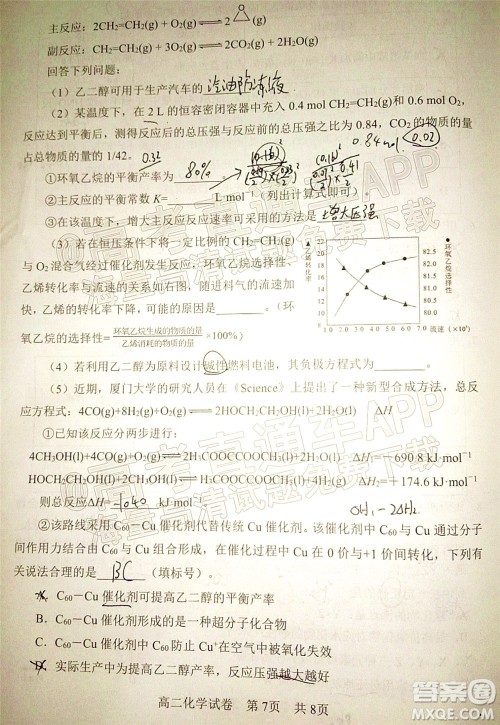 主反应：2CH₂=CH₂(g) + O₂(g) ⇌ 2 △O (g)
副反应：CH₂=CH₂(g) + 3O₂(g) ⇌ 2CO₂(g) + 2H₂O(g)
回答下列问题：
（1）乙二醇可用于生产汽车的 汽油防冻液
（2）某温度下，在 2 L 的恒容密闭容器中充入 0.4 mol CH₂=CH₂(g)和 0.6 mol O₂，
反应达到平衡后，测得反应后的总压强与反应前的总压强之比为 0.84，CO₂的物质的量
占总物质的量的 1/42。 0.84mol 0.02
①环氧乙烷的平衡产率为 80%
②主反应的平衡常数 K= L·mol⁻¹（列出计算式即可）。
③在该温度下，增大主反应反应速率可采用的方法是 增大压强
（3）若在恒压条件下将一定比例的 CH₂=CH₂(g)
与 O₂混合气经过催化剂发生反应，环氧乙烷的选择性、
乙烯转化率与流速的关系如右图，随进料气的流速增大，
乙烯的转化率下降，可能的原因是 。（环
氧乙烷的选择性=环氧乙烷生成的物质的量/乙烯消耗的物质的量×100%）
▲乙烯转化率
22
21
20
18
16
14
12
10
●环氧乙烷选择性
82.5
82.0
81.5
81.0
80.5
80.0
1.0 2.0 3.0 4.0 5.0 6.0 7.0 流速（×10³）
（4）若利用乙二醇为原料设计碱性燃料电池，其负极方程式为 。
（5）近期，厦门大学的研究人员在《Science》上提出了一种新型合成方法，总反
应方程式：4CO(g)+8H₂(g)+O₂(g) ⇌ 2HOCH₂CH₂OH(l)+2H₂O(l) ΔH
①已知该反应分两步进行：
4CH₃OH(l)+4CO(g)+O₂(g) ⇌ 2CH₃COOCCOOCH₃(l)+2H₂O(l) ΔH₁=－690.8 kJ·mol⁻¹
HOCH₂CH₂OH(l)+2CH₃OH(l) ⇌ CH₃COOCCOOCH₃(l)+4H₂(g) ΔH₂=＋174.6 kJ·mol⁻¹
则总反应ΔH= -1040
ΔH₁-2ΔH₂
②该路线采用 C₆₀－Cu 催化剂代替传统 Cu 催化剂。该催化剂中 C₆₀与 Cu 通过分子
间作用力结合由 C₆₀与 Cu 组合形成，在工业合成过程中 Cu 在 0 价与+1 价间转化，下列有
关说法合理的是 BC （填标号）。
A．C₆₀－Cu 催化剂可提高乙二醇的平衡产率
B．C₆₀－Cu 催化剂形成的是一种超分子化合物
C．C₆₀－Cu 催化剂中 C₆₀防止 Cu⁺在空气中被氧化失效
D．实际生产中为提高乙二醇产率，反应压强越大越好
高二化学试卷 第 7页 共 8页